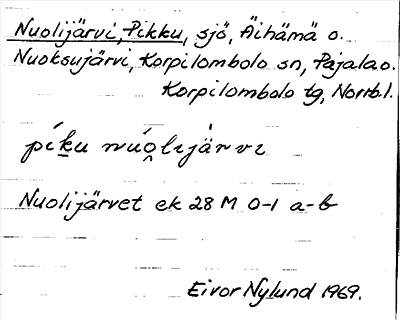 Nuolijärvi, Pikku, sjö, Äihämä o.
Nuoksujärvi, Korpilombolo sn, Pajala o.
Korpilombolo tg, Norrb. l.
píku núo̯lijärvi
Nuolijärvet ek 28 M 0-1 a-b
Eivor Nylund 1969.